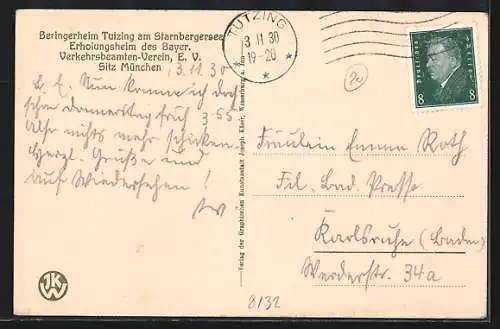 Beringerheim Tutzing am Starnbergersee
Erholungsheim des Bayer.
Verkehrsbeamten-Verein, E. V.
Sitz München
3.11.30
L. E. Nun komme ich doch
schon Donnerstag früh 3.55
Also nichts mehr schicken.
Herzl. Grüße und
auf Wiedersehen!
TUTZING
3 11 30
19-20
Verlag der Graphischen Kunstanstalt Joseph Käser, Wasserburg a. Inn
Pu
8
8
Fräulein Emma Roth
Fil. Bad. Presse
Karlsruhe (Baden)
Werderstr. 34a
8132
JKW